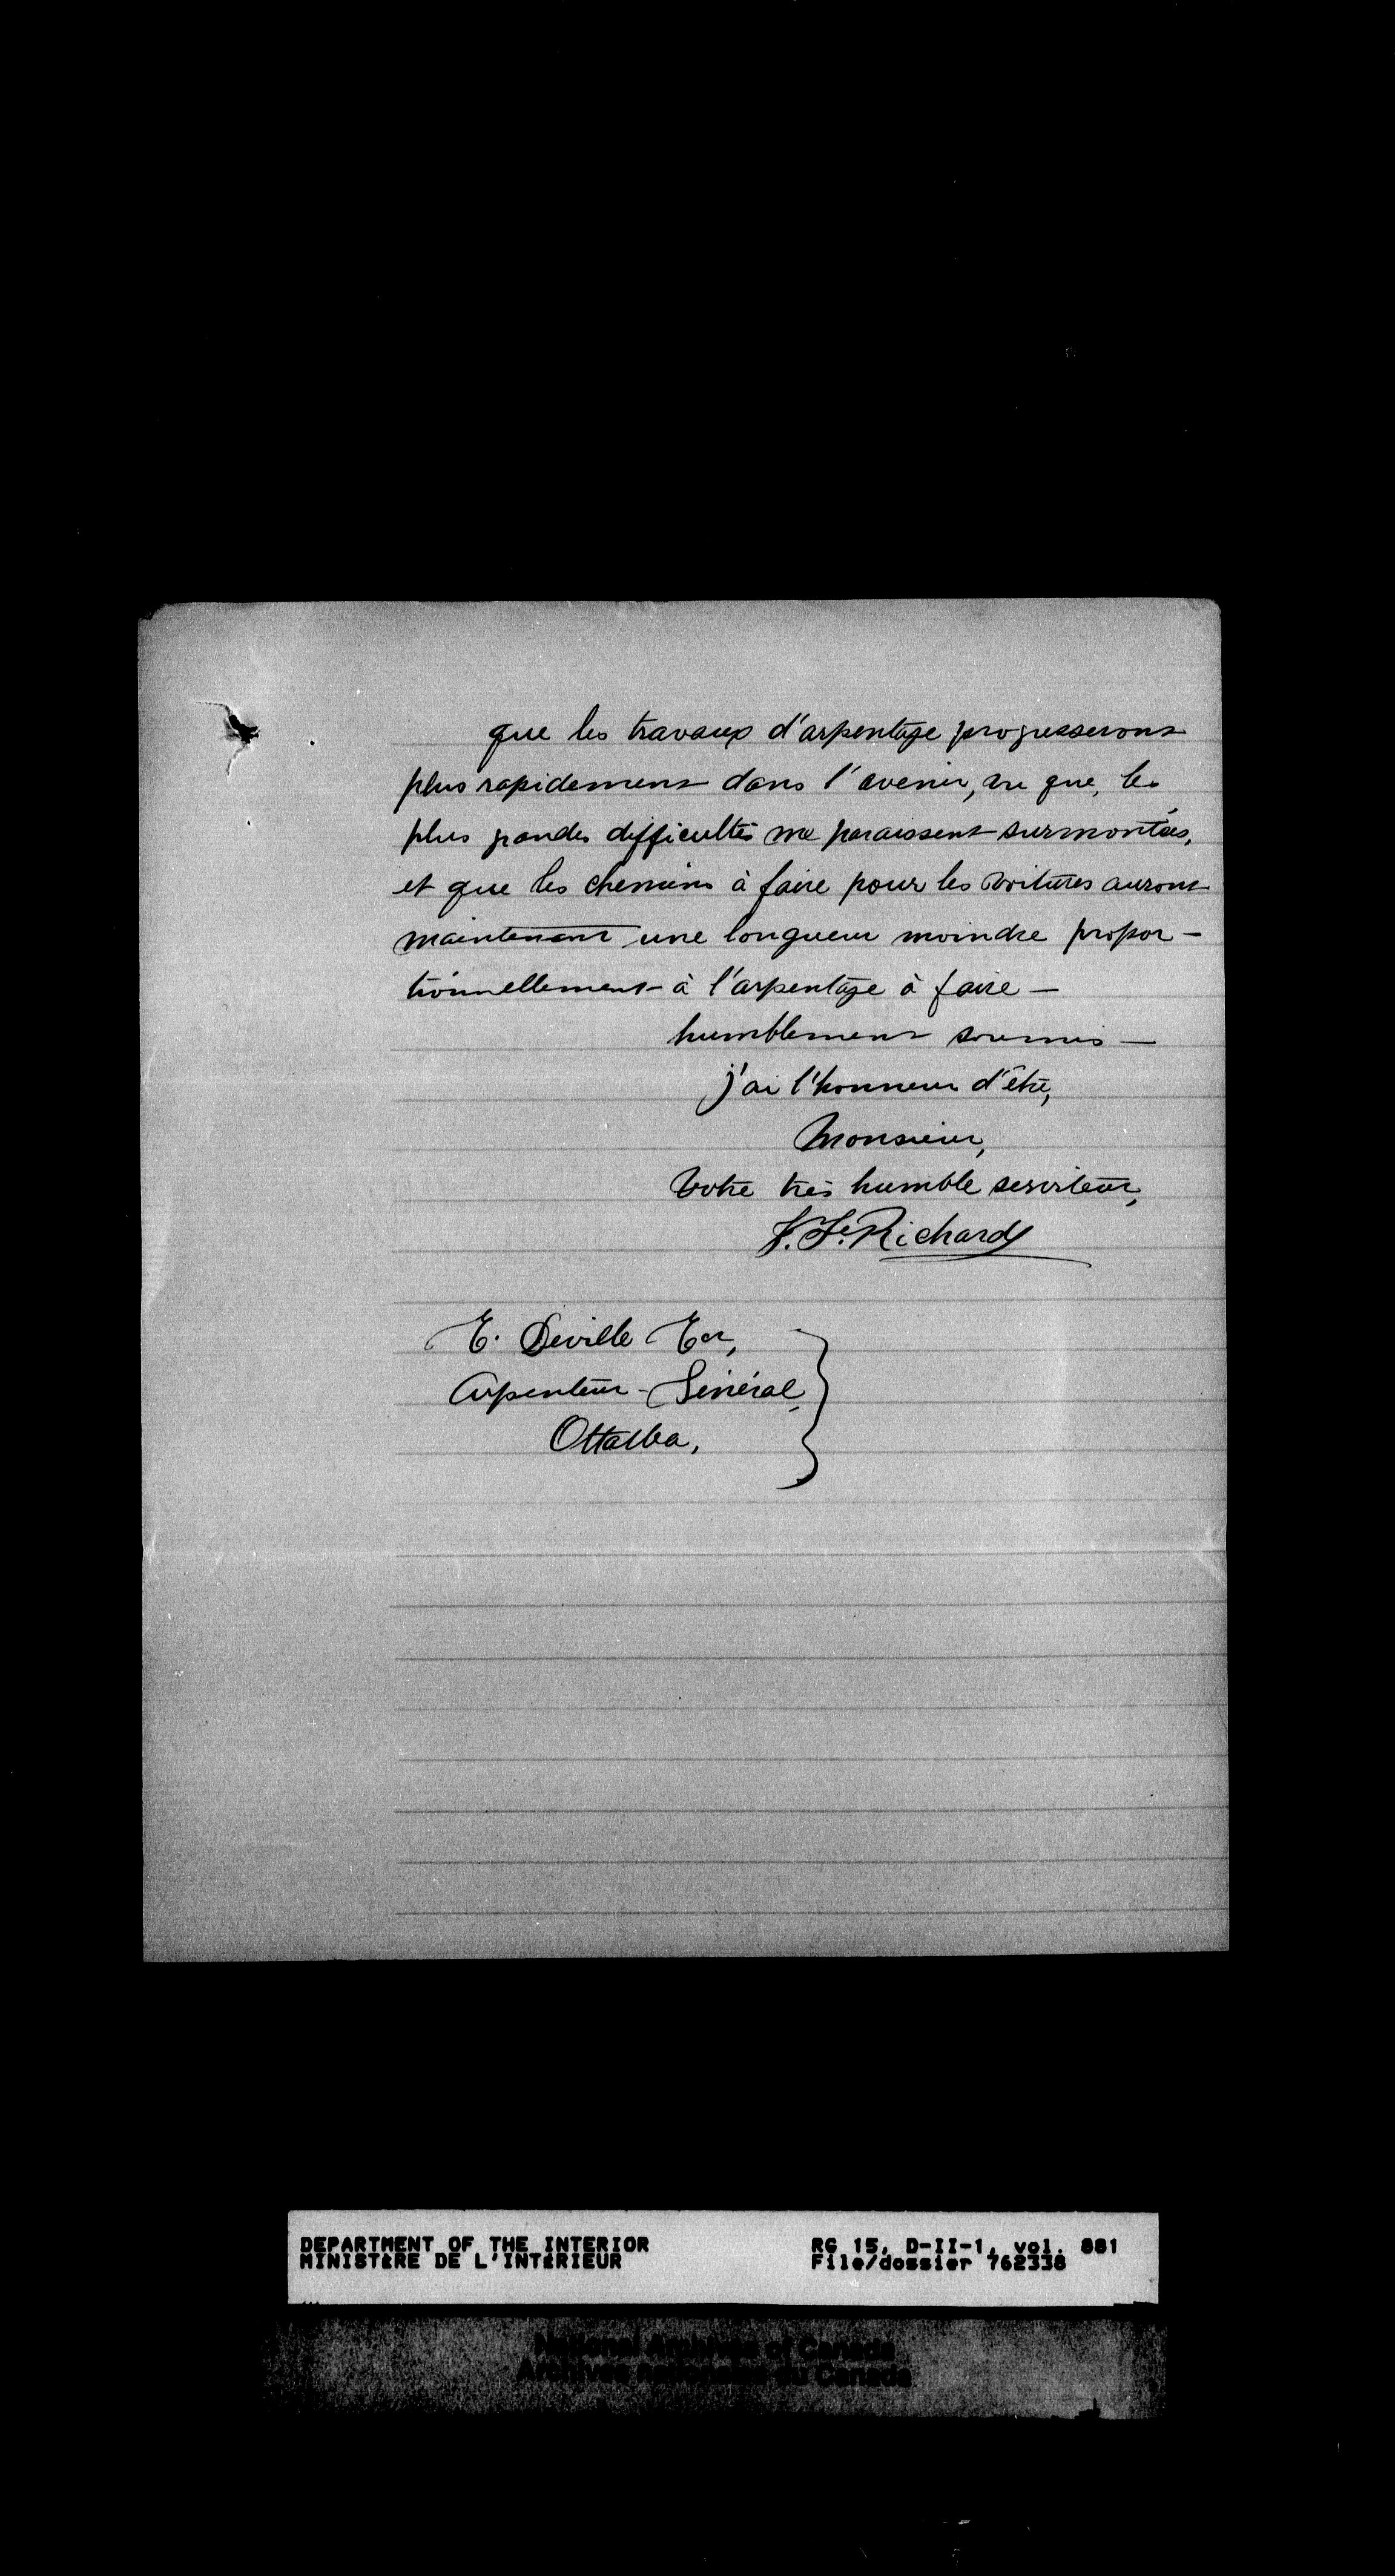 que les travaux d'arpentage progresserons
plus rapidement dans l'avenir, vu que, les
plus grandes difficultés me paraissent surmontées,
et que les chemins à faire pour les voitures aurons
maintenant une longueur moindre propor-
tionnellement à l'arpentage à faire —
humblement soumis —
j'ai l'honneur d'être,
Monsieur,
Votre très humble serviteur,
J. F. Richard
E. Deville Ecr,
Arpenteur-Général,
Ottawa,
DEPARTMENT OF THE INTERIOR RG 15, D-II-1, vol. 881
MINISTÈRE DE L'INTÉRIEUR File/dossier 762338
National Archives of Canada
Archives nationales du Canada